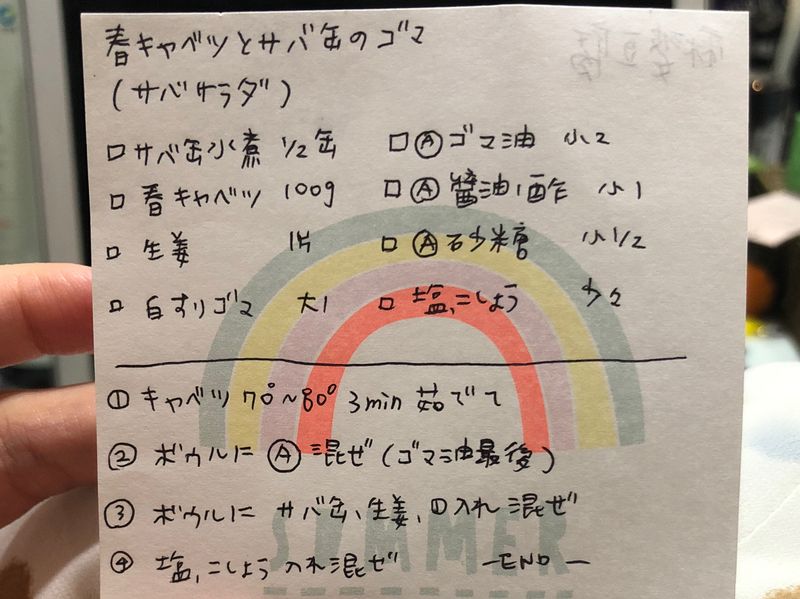 春キャベツとサバ缶のゴマ
(サバサラダ)
□ サバ缶水煮 1/2缶 □ Ⓐ ゴマ油 小2
□ 春キャベツ 100g □ Ⓐ 醤油、酢 小1
□ 生姜 1片 □ Ⓐ 砂糖 小1/2
□ 白すりゴマ 大1 □ 塩、こしょう 少々
① キャベツ 70°~80° 3min 茹でて
② ボウルに Ⓐ 混ぜ (ゴマ油最後)
③ ボウルに サバ缶、生姜、①入れ 混ぜ
④ 塩、こしょう 入れ混ぜ —END—
SUMMER